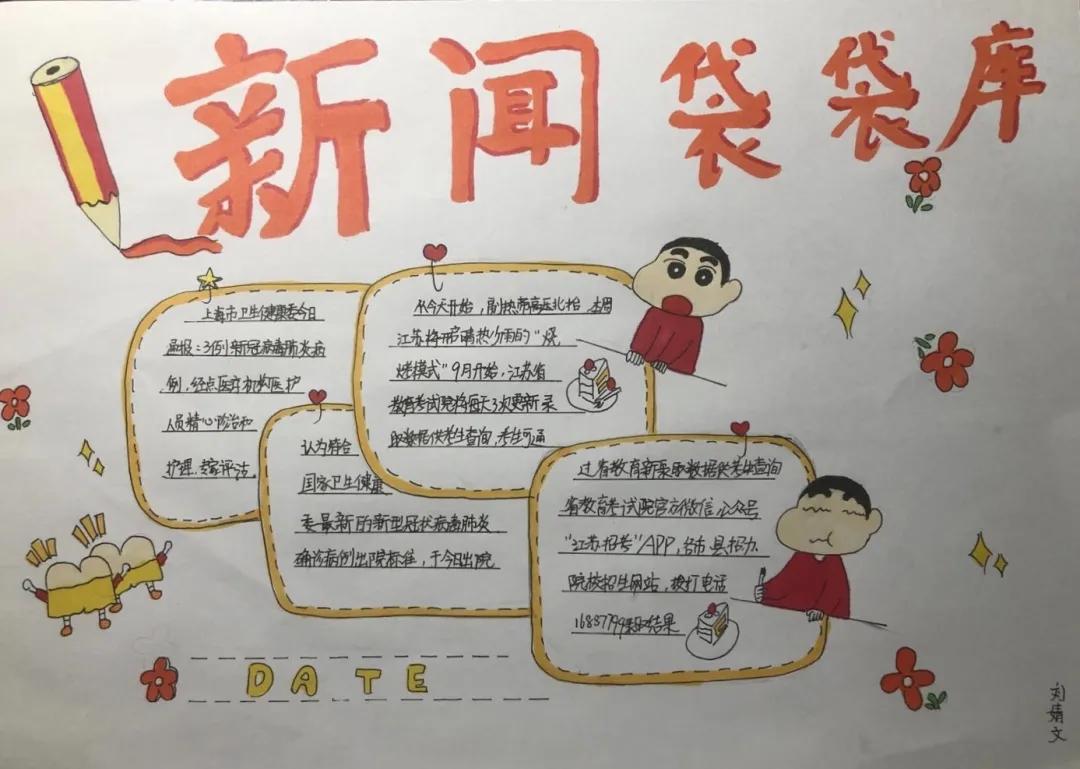 新闻袋袋库
上海市卫生健康委今日
通报:3例新冠病毒肺炎病
例,经点医疗机构医护
人员精心防治和
护理,专家评估
认为符合
国家卫生健康
委最新的新型冠状病毒肺炎
确诊病例出院标准,于今日出院
从今天开始,副热带高压北抬 本周
江苏将开启晴热少雨的“烧
烤模式”9月开始,江苏省
教育考试院将每天3次更新录
取数据供考生查询,考生可通
过省教育新录取数据供考生查询
省教育考试院官方微信公众号
“江苏招考”APP,各市、县招办
院校招生网站,拨打电话
16887799 结果
DATE
刘婧文